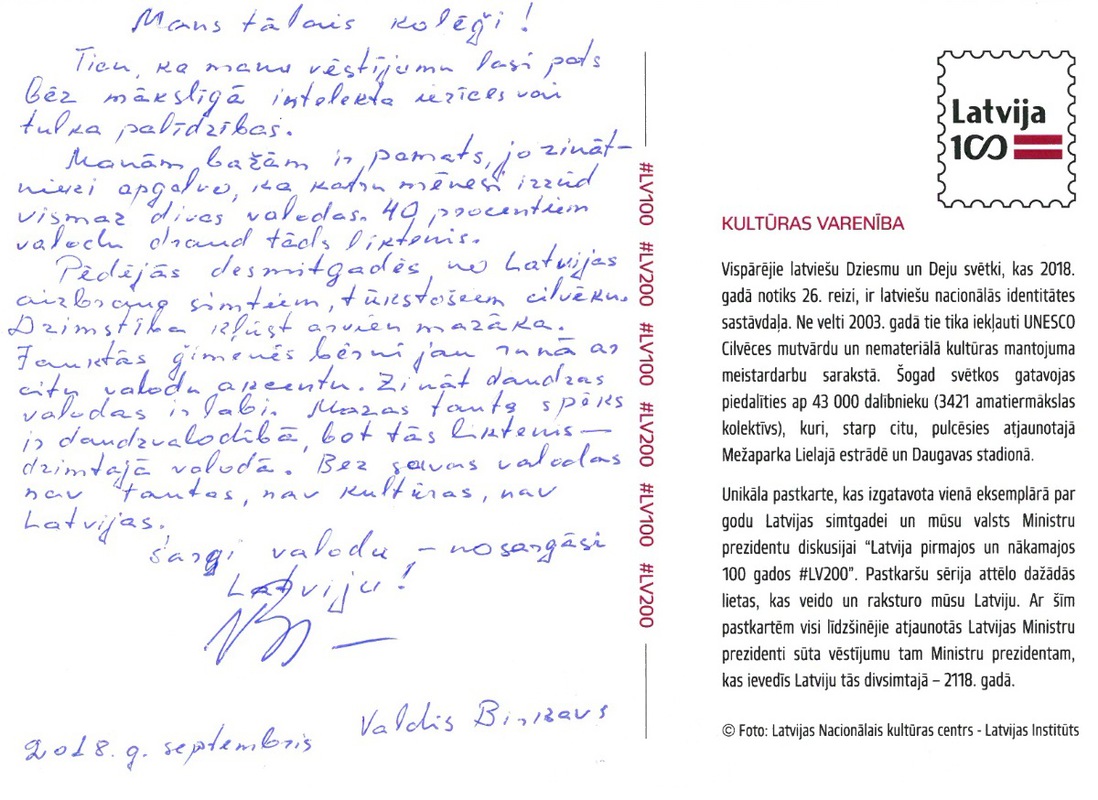 Mans tālais kolēģi!
Ticu, ka manu vēstījumu lasi pats
bēz mākslīgā intelekta ierīces vai
tulka palīdzības.
Manām bažām ir pamats, jo zināt-
nieki apgalvo, ka katru mēnesi izzūd
vismaz divas valodas. 40 procentiem
valodu draud tāds liktenis.
Pēdējās desmitgadēs no Latvijas
aizbrauc simtiem, tūkstošiem cilvēku.
Dzimstība kļūst arvien mazāka.
Jauktās ģimenēs bērni jau runā ar
citu valodu akcentu. Zināt daudzas
valodas ir labi. Mazas tautas spēks
ir daudzvalodībā, bet tās liktenis –
dzimtajā valodā. Bez savas valodas
nav tautas, nav kultūras, nav
Latvijas.
Sargi valodu – nosargāsi
Latviju!
Valdis Birkavs
2018. g. septembris
#LV100 #LV200 #LV100 #LV200 #LV100 #LV200
Latvija
100
KULTŪRAS VARENĪBA
Vispārējie latviešu Dziesmu un Deju svētki, kas 2018.
gadā notiks 26. reizi, ir latviešu nacionālās identitātes
sastāvdaļa. Ne velti 2003. gadā tie tika iekļauti UNESCO
Cilvēces mutvārdu un nemateriālā kultūras mantojuma
meistardarbu sarakstā. Šogad svētkos gatavojas
piedalīties ap 43 000 dalībnieku (3421 amatiermākslas
kolektīvs), kuri, starp citu, pulcēsies atjaunotajā
Mežaparka Lielajā estrādē un Daugavas stadionā.
Unikāla pastkarte, kas izgatavota vienā eksemplārā par
godu Latvijas simtgadei un mūsu valsts Ministru
prezidentu diskusijai “Latvija pirmajos un nākamajos
100 gados #LV200”. Pastkaršu sērija attēlo dažādās
lietas, kas veido un raksturo mūsu Latviju. Ar šīm
pastkartēm visi līdzšinējie atjaunotās Latvijas Ministru
prezidenti sūta vēstījumu tam Ministru prezidentam,
kas ievedīs Latviju tās divsimtajā – 2118. gadā.
© Foto: Latvijas Nacionālais kultūras centrs - Latvijas Institūts